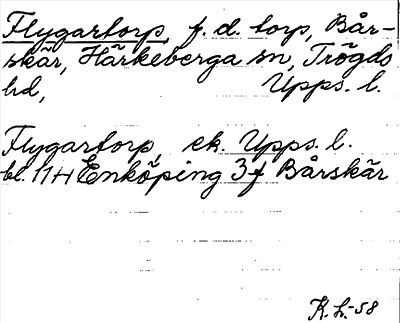 Flygartorp, f. d. torp, Bår-
skär, Härkeberga sn, Trögds
hd, Upps. l.
Flygartorp, ek. Upps. l.
bl. 11H Enköping 3f Bårskär
K. h.-58